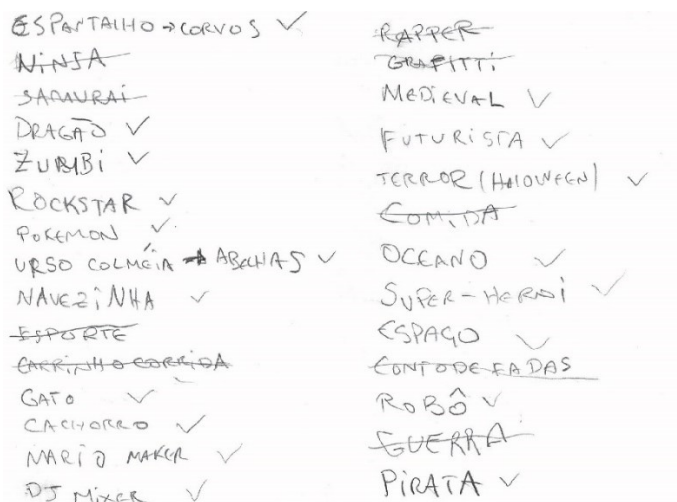 ESPANTALHO → CORVOS ✓
NINJA
SAMURAI
DRAGÃO ✓
ZUMBI ✓
ROCKSTAR ✓
POKEMON ✓
URSO COLMÉIA → ABELHAS ✓
NAVEZINHA ✓
ESPORTE
CARRINHO CORRIDA
GATO ✓
CACHORRO ✓
MARIO MAKER ✓
DJ MIXER ✓
RAPPER
GRAFITTI
MEDIEVAL ✓
FUTURISTA ✓
TERROR (HALOWEEN) ✓
COMIDA
OCEANO ✓
SUPER-HERÓI ✓
ESPAÇO ✓
CONTO DE FADAS
ROBÔ ✓
GUERRA
PIRATA ✓